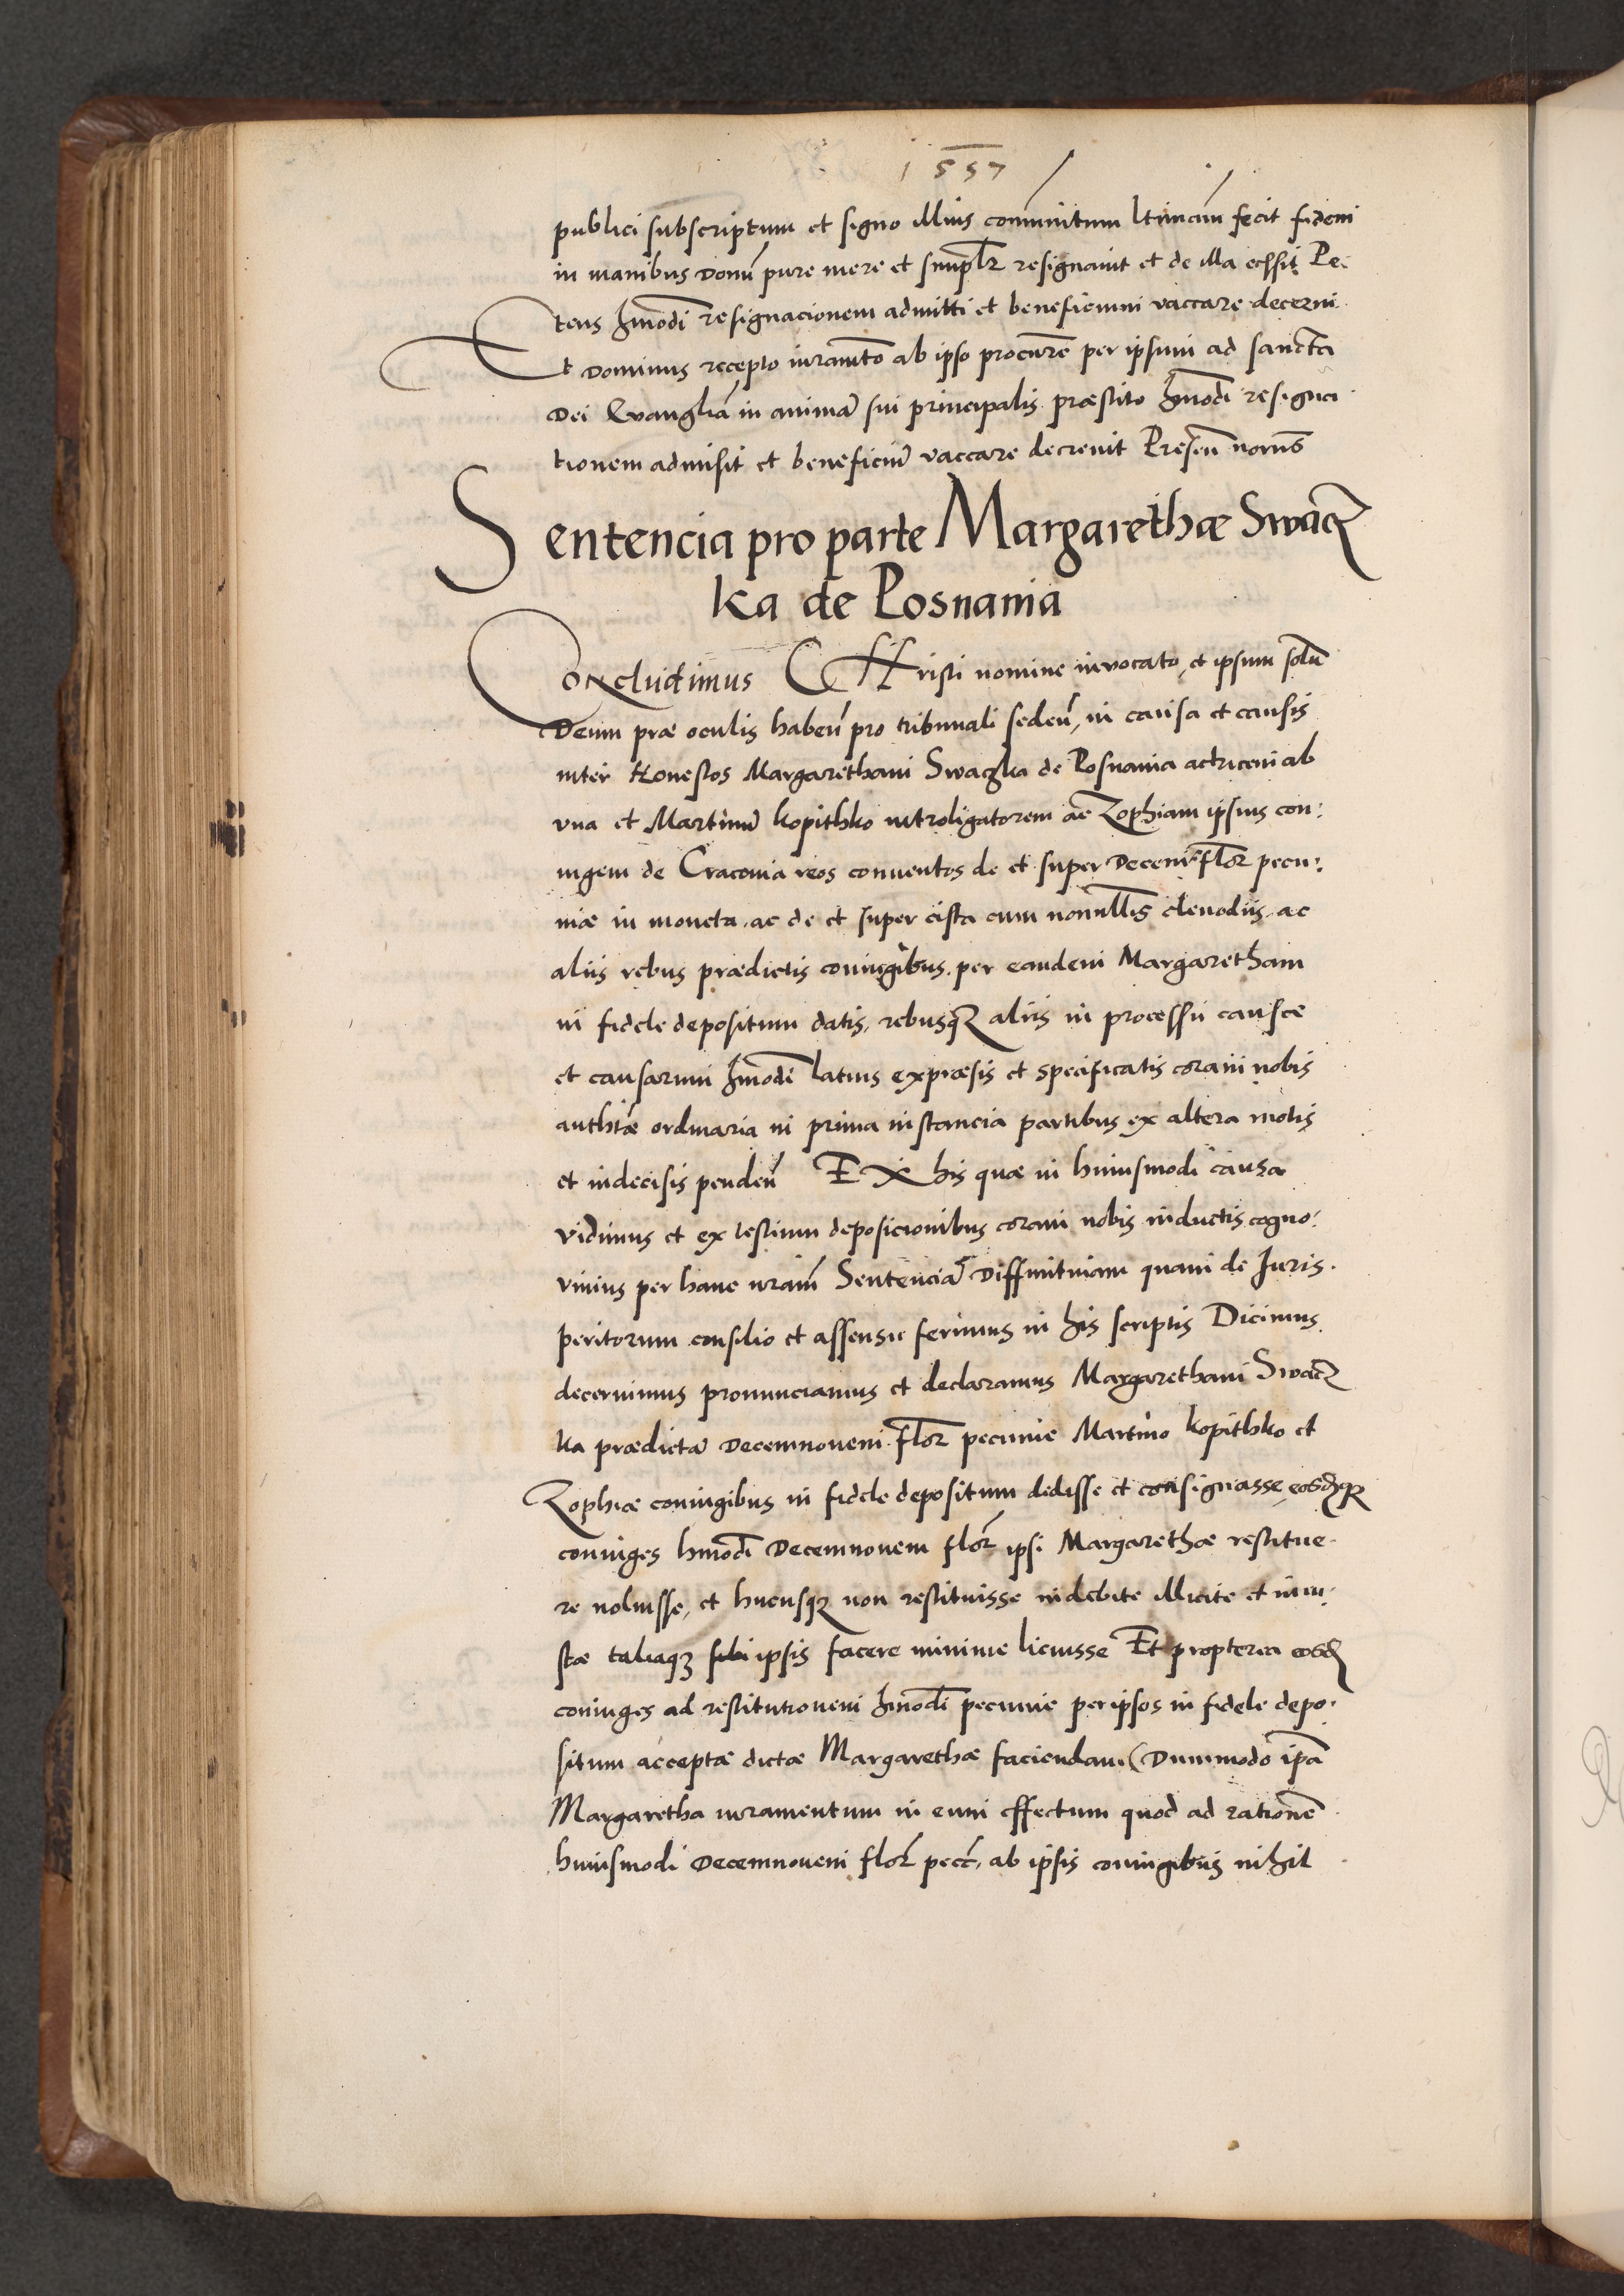 1557
publici subscriptum et signo illius communitum ltimcum fecit fidem
in manibus Domi pure mere et simplr resignavit et de illa cessit Pe-
tens hmodi resignacionem admitti et beneficium vaccare decerni
Et Dominus recepto iuramto ab ipso procure per ipsum ad sancta
Dei Evanglia in anima sui principalis præstito hmodi resigna
tionem admisit et beneficiu vaccare decrevit Presen norus
Sentencia pro parte Margarethæ Swacz
ka de Posnania
Concludimus CHristi nomine invocato, et ipsum solu
Deum præ oculis haben pro tribunali seden, in causa et causis
inter Honestos Margaretham Swaczka de Posnania actricem ab
vna et Martinu kopithko introligatorem ac Zophiam ipsius con:
iugem de Cracovia reos conventos de et super Decem flor pecu:
niæ in moneta, ac de et super cista cum nonullis clenodiis, ac
aliis rebus prædictis coniugibus per eandem Margaretham
in fidele depositum datis, rebusq3 aliis in processu causæ
et causarum hmodi latius expræsis et specificatis coram nobis
authte ordinaria in prima instancia partibus ex altera motis
et indecisis penden EX his quæ in huiusmodi causa
vidimus et ex testium deposicionibus coram nobis inductis cogno:
vimus per hanc nram Sentencia Diffinitivam quam de Juris.
peritorum consilio et assensu ferimus in his scriptis Dicimus
decernimus pronunciamus et declaramus Margaretham Swacz
ka prædicta Decemnovem flor pecuniæ Martino kopithko et
Zophiæ coniugibus in fidele depositum dedisse et consignasse, eosdq3
coniuges hmodi Decemnovem flor ipsi Margarethæ restitue-
re noluisse, et hucusq3 non restituisse indebite illicite et iniu-
stæ taliaq3 sibi ipsis facere minime licuisse Et propterea eosd
coniuges ad restitutionem hmodi pecuniæ per ipsos in fidele depo-
situm acceptæ dictæ Margarethæ faciendam (Dummodo ipa
Margaretha iuramentum in eum effectum quod ad ratione
huiusmodi Decemnovem flor pecc, ab ipsis coniugibus nihil